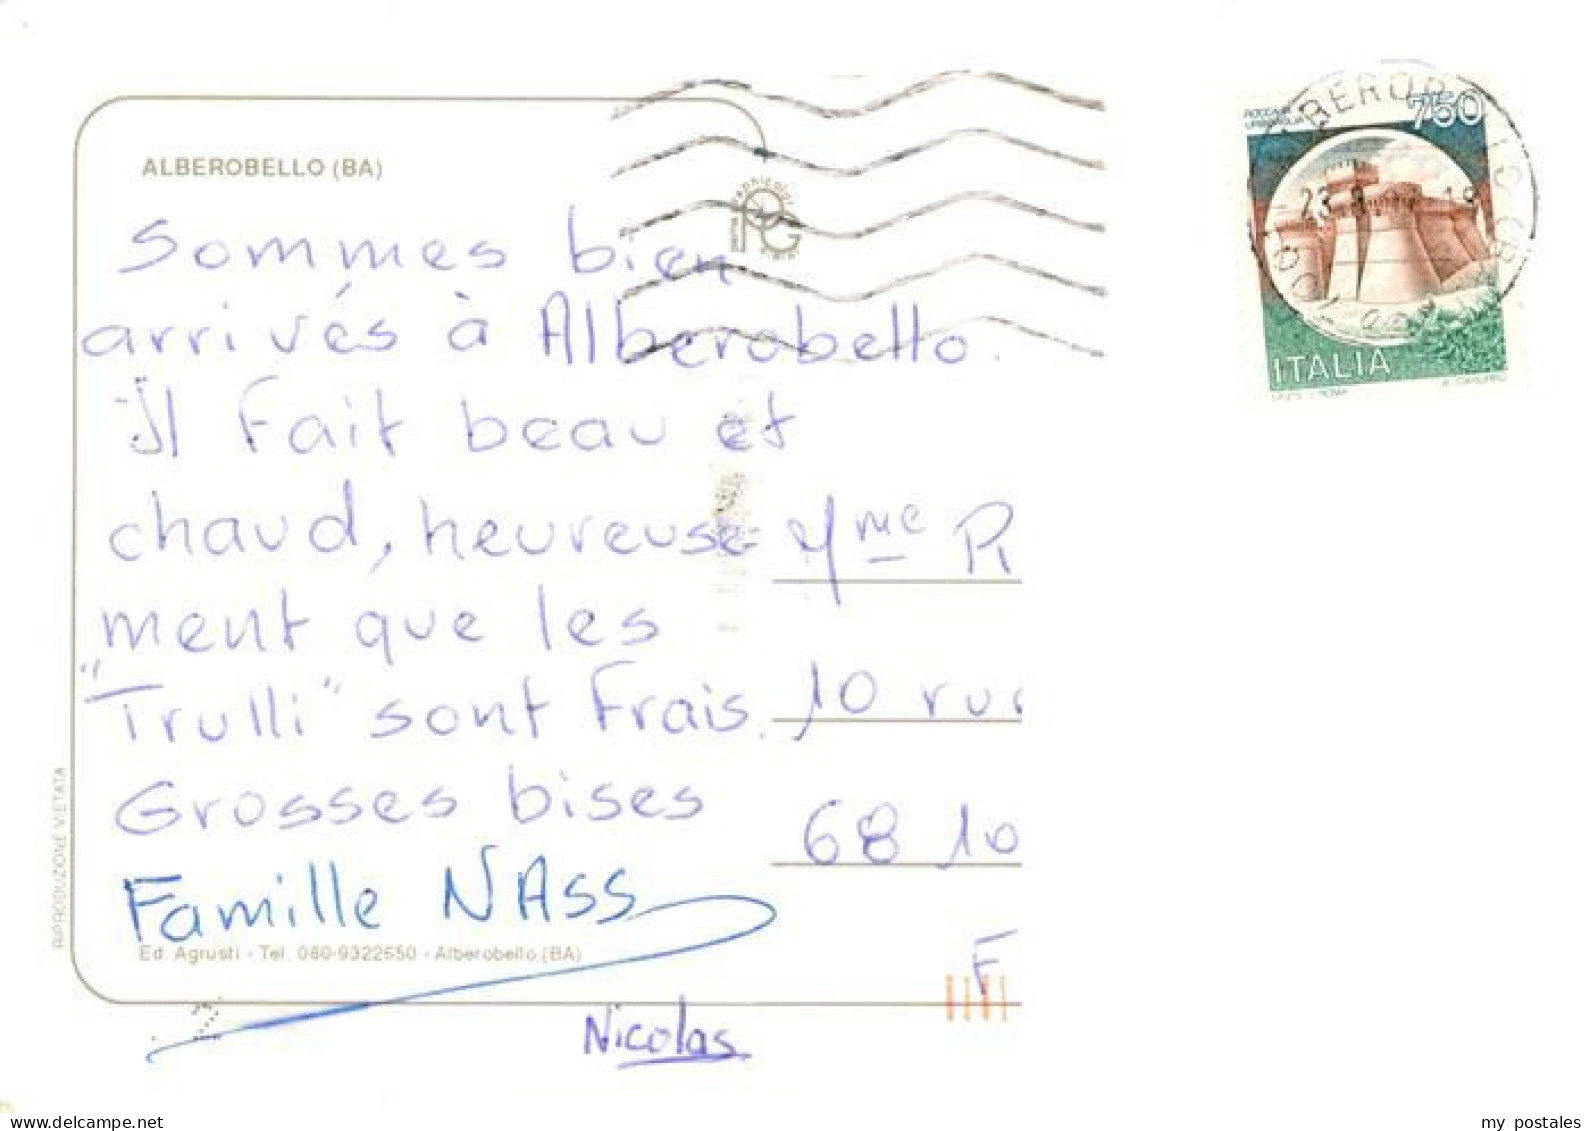 ALBEROBELLO (BA)
Sommes bien
arrivés à Alberobello.
Il Fait beau et
chaud, heureuse-
ment que les
"Trulli" sont Frais.
Grosses bises
Famille NASS
Nicolas
Ed. Agrusti - Tel. 080-9322650 - Alberobello (BA)
RIPRODUZIONE VIETATA
Mme
10 rue
68 10
F
750
ITALIA
my postales